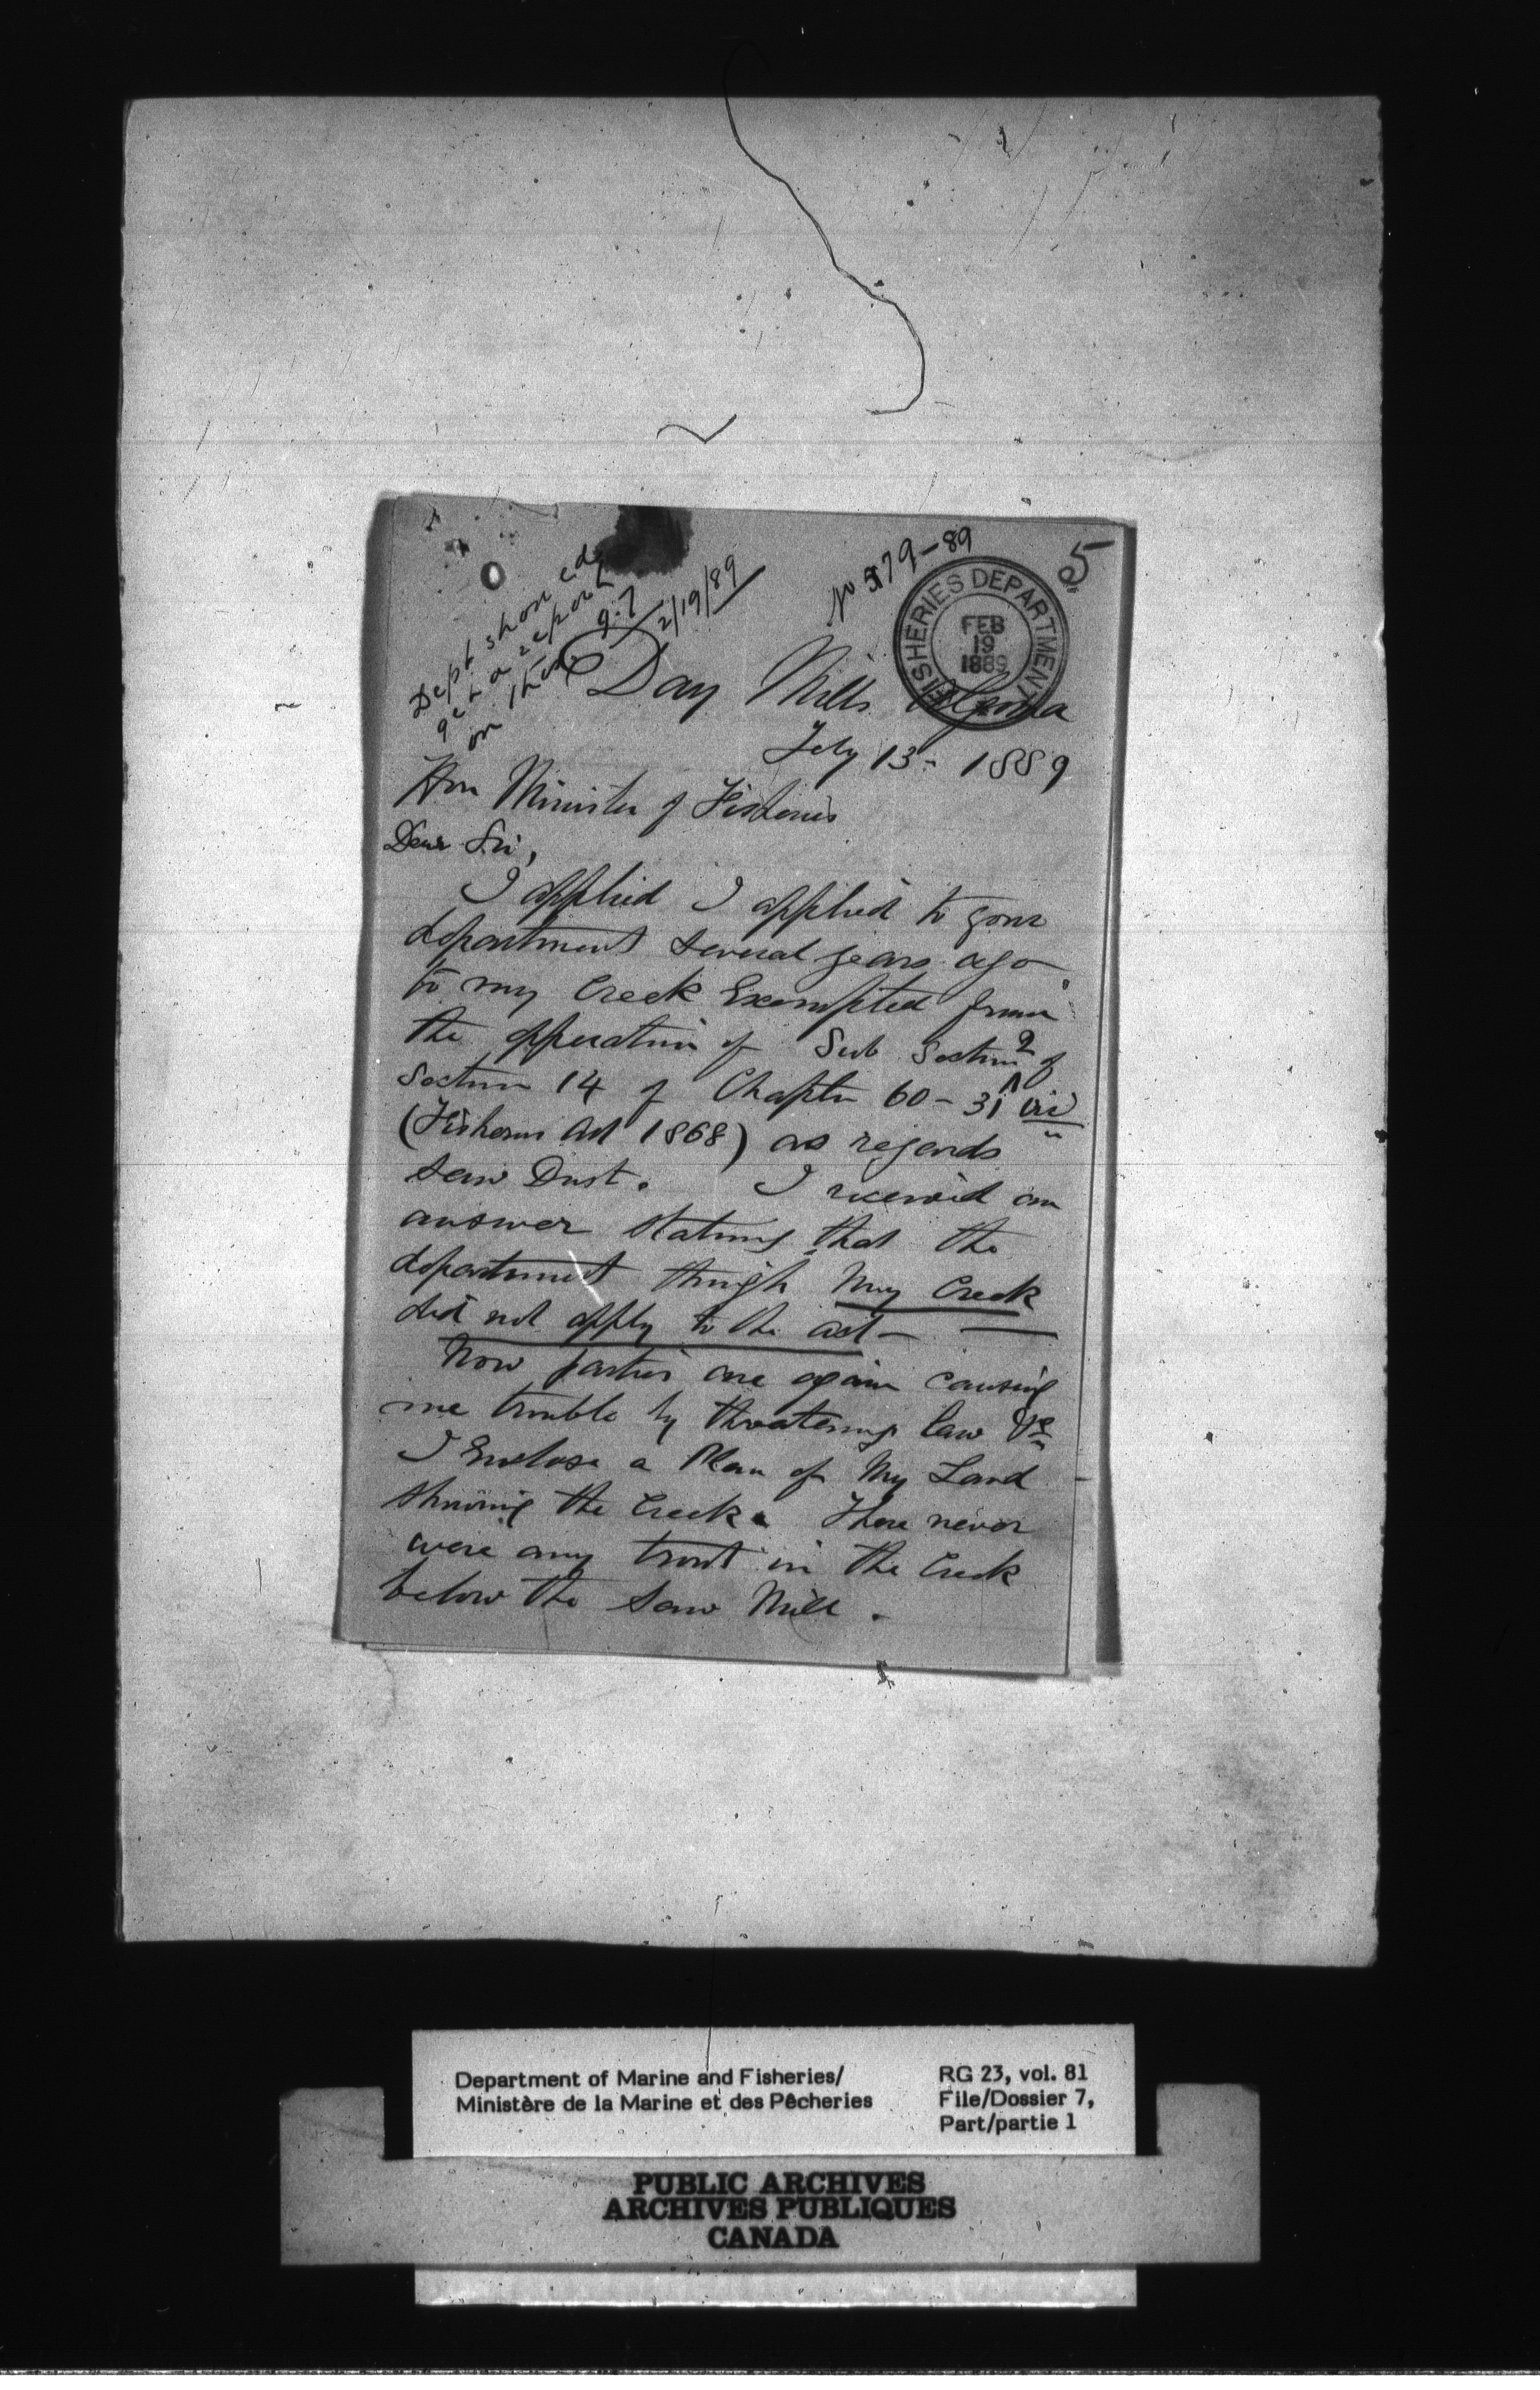 5
No 579-89
FISHERIES DEPARTMENT
FEB
19
1889
Dept should
get a report
on this
2/19/89
Day Mills Algoma
Feby 13 - 1889
Hon Minister of Fisheries
Dear Sir,
I applied I applied to your
department several years ago
to my Creek Exempted from
the opperation of Sub Section 2 of
Section 14 of Chapter 60 - 31 Vic
(Fisheries Act 1868) as regards
Saw Dust. I received an
answer stating that the
department though My Creek
did not apply to the act -
Now parties are again causing
me trouble by threatening law &c
I Enclose a Plan of My Land
showing the Creek. There never
were any trout in the Creek
below the Saw Mill.
Department of Marine and Fisheries/
Ministère de la Marine et des Pêcheries
RG 23, vol. 81
File/Dossier 7,
Part/partie 1
PUBLIC ARCHIVES
ARCHIVES PUBLIQUES
CANADA